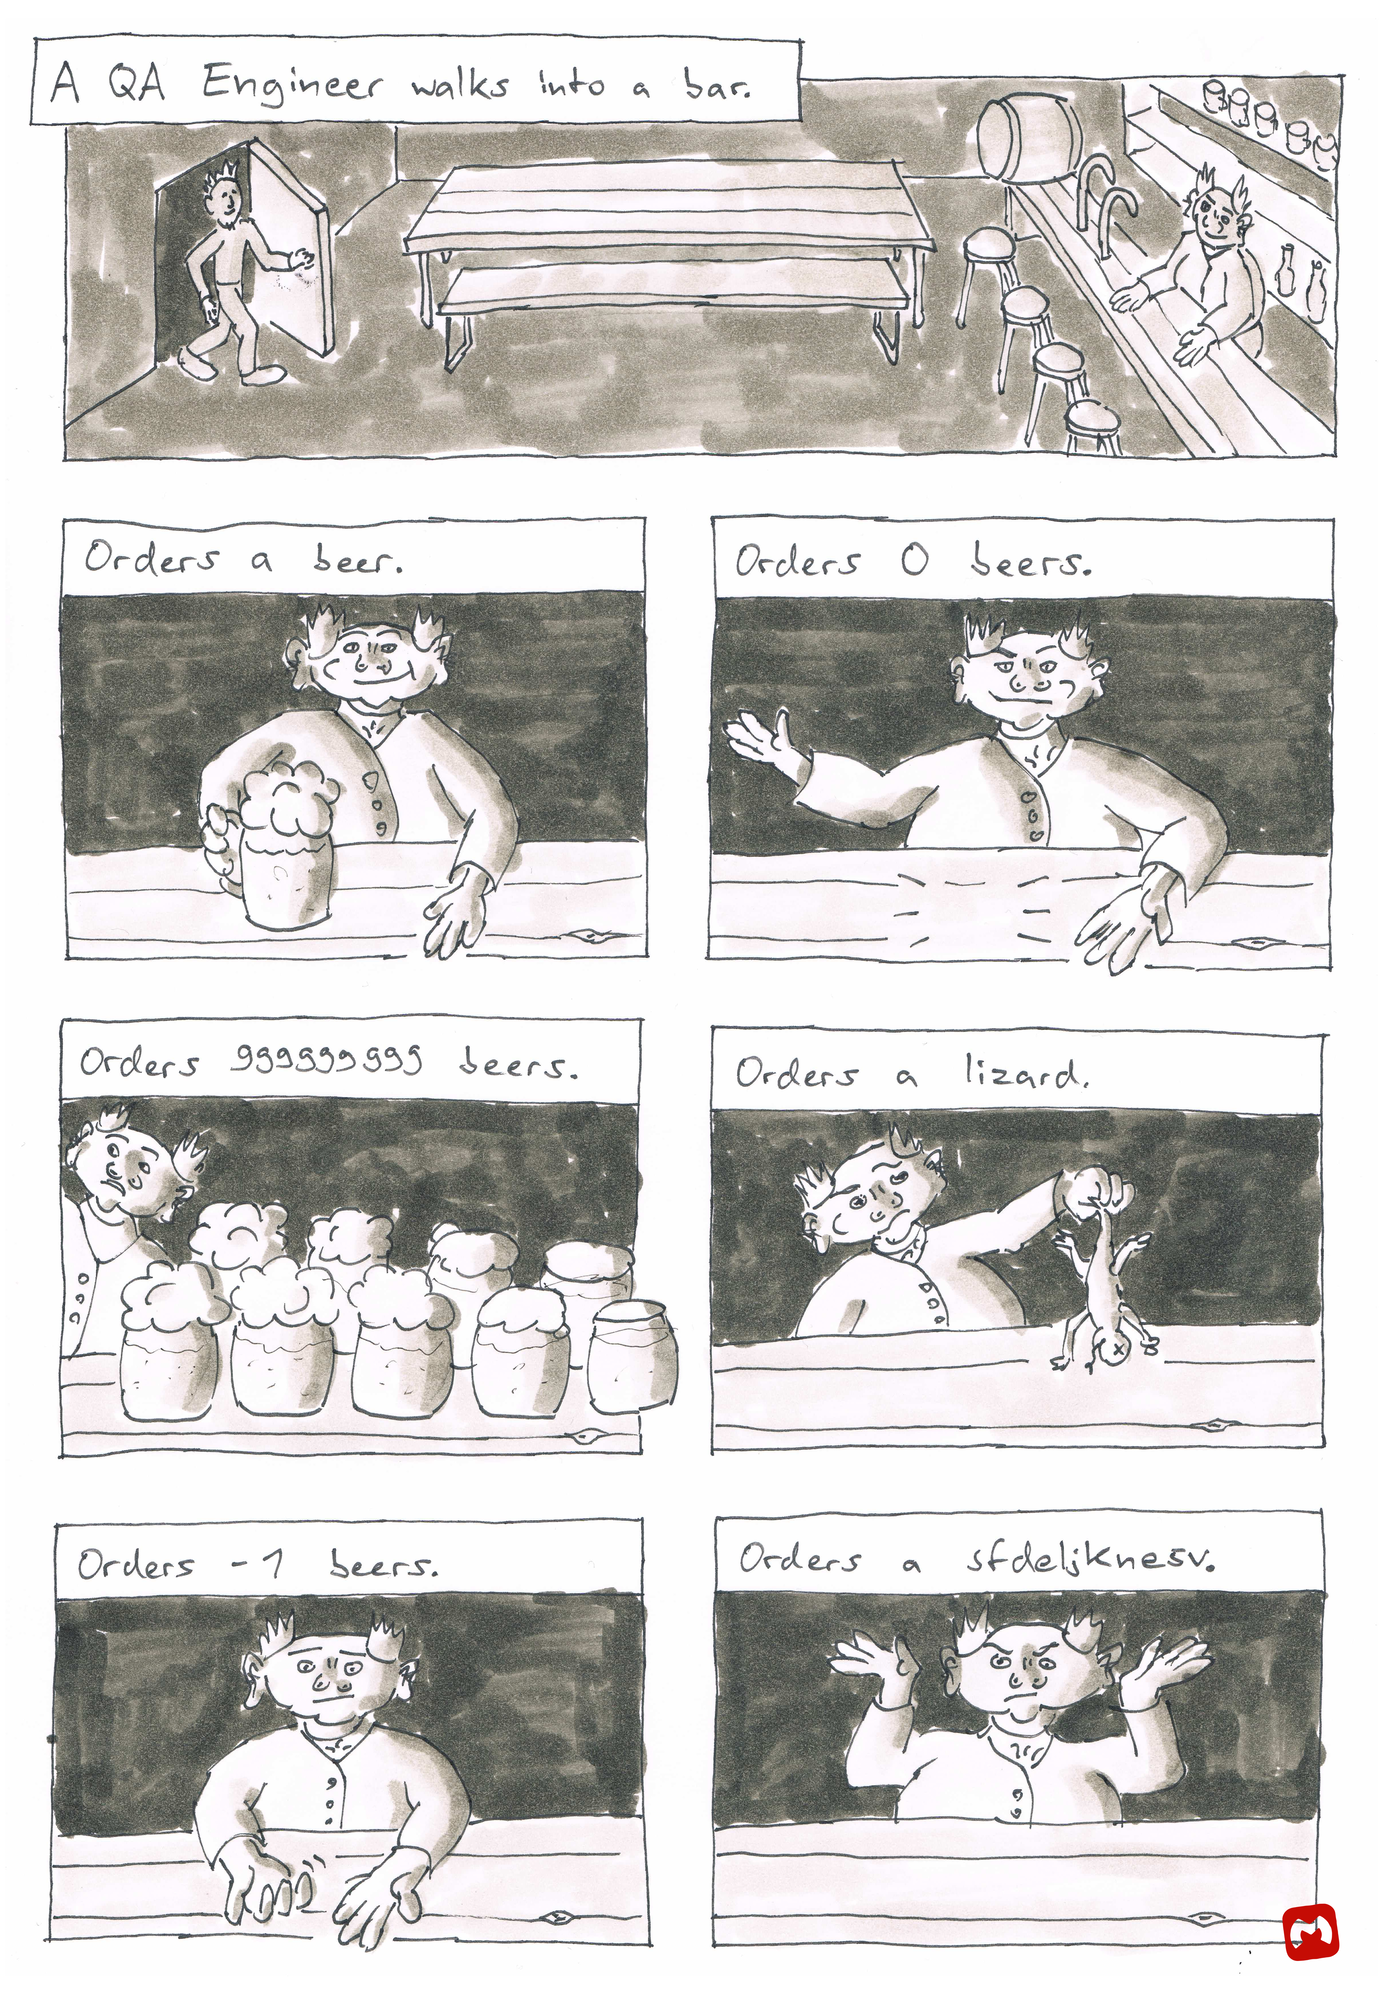 A QA Engineer walks into a bar.
Orders a beer.
Orders 0 beers.
Orders 999999999 beers.
Orders a lizard.
Orders -1 beers.
Orders a sfdeljknesv.